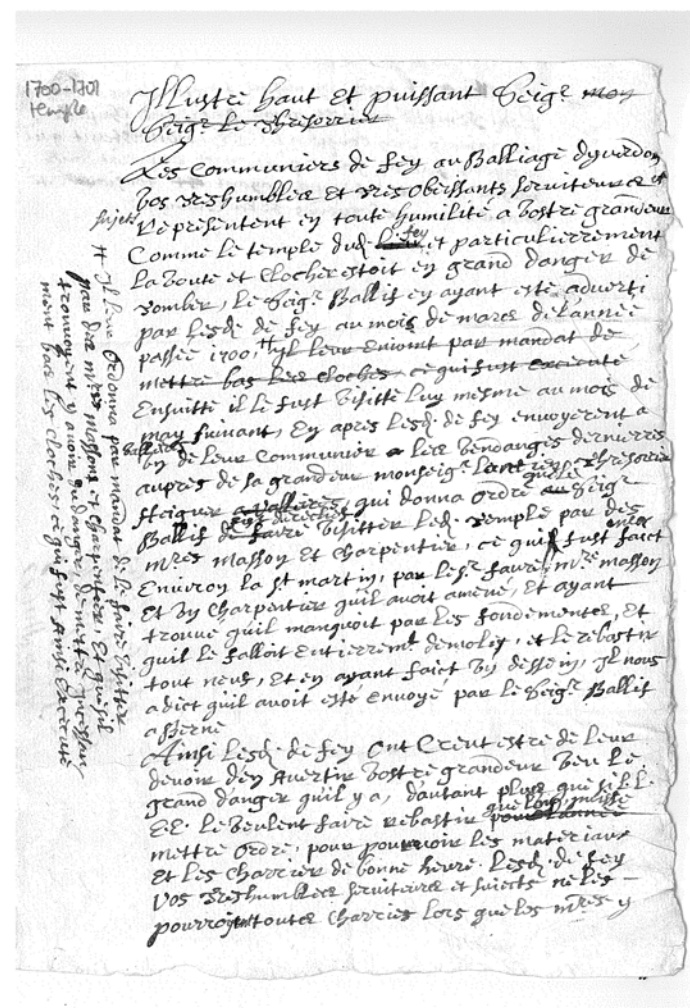 1700-1701
temple
Illustre haut et puissant Seigr mon
Seigr le Thresorrier
Les Communiers de fey au Balliage dyverdon
vos treshumbles et tres obeissants serviteurs et
sujets
Representent en toute humilité, a vostre grandeur
Comme le temple dud. fey et particulierrement
la voute et Clocher estoit en grand danger de
tomber, le Seigr Ballif en ayant esté adverti
par lesd. de fey au mois de mars de l'année
passée 1700, il leur enioint par mandat de
mettre bas les cloches, ce qui fust executé
Ensuitte il le fust visitte luy mesme au mois de
may suivant, En apres lesd. de fey envoyerent a
un de leur Communier a les vendanges dernieres
aupres de sa grandeur monseigr Thresorrier
Steiguer qui donna ordre Seigr
Ballif de faire visitter led. temple par des
mres masson et charpentier, ce qui fust faict
Environ la st martin, par le sr favre mre masson
Et un Charpentier quil avoit amené, et ayant
trouvé quil manquoit par les fondements, et
quil le falloit entierremt demolir, et le rebastir
tout neuf, Et en ayant faict un dessein, Il nous
a dict quil avoit esté envoyé par le Seigr Ballif
a Berne
Ainsi lesd. de fey ont Creut estre de leur
devoir den avertir vostre grandeur veu le
grand danger quil y a, d'autant plus que si L L
EE. le veulent faire rebastir que lon puisse
mettre ordre, pour pourvoir les materiaux
Et les charrier de bonne heure. Lesd. de fey
vos treshumbles serviteurs et sujects ne les
pourroyent toutes charries lors que les mres y
Il leur ordonna par mandat de le faire visitter
par des mres massons et charpentier, Et que sil
trouvoyent y avoir du danger, de mettre Incessam
ment bas les cloches, ce qui fust ainsi executé